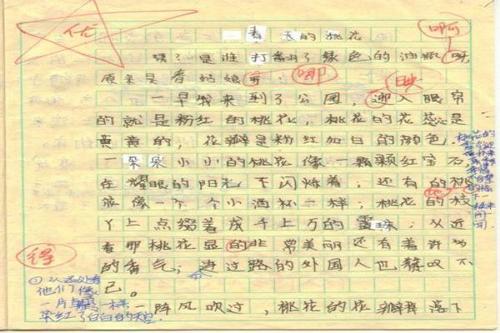 春天的桃花
了是谁打翻了绿色的油瓶呀
原来是春姑娘
一早我来到了公园，迎入眼帘
的就是粉红的桃花，桃花的花蕊是
黄黄的，花瓣是粉红加白的颜色，
一朵朵小小的桃花像一颗颗红宝石
在耀眼的阳光下闪烁着，还有的桃
花像一个个小酒杯一样；桃花的枝
丫上点缀着成千上万的露珠，从近
看那桃花显的非常美丽还有着诱人
的香气，连过路的外国人也赞叹不
已。
一阵风吹过，桃花的花瓣落下
优
啊
哪
映
得
①从远处看
他们像
一片
染红了白白的天空